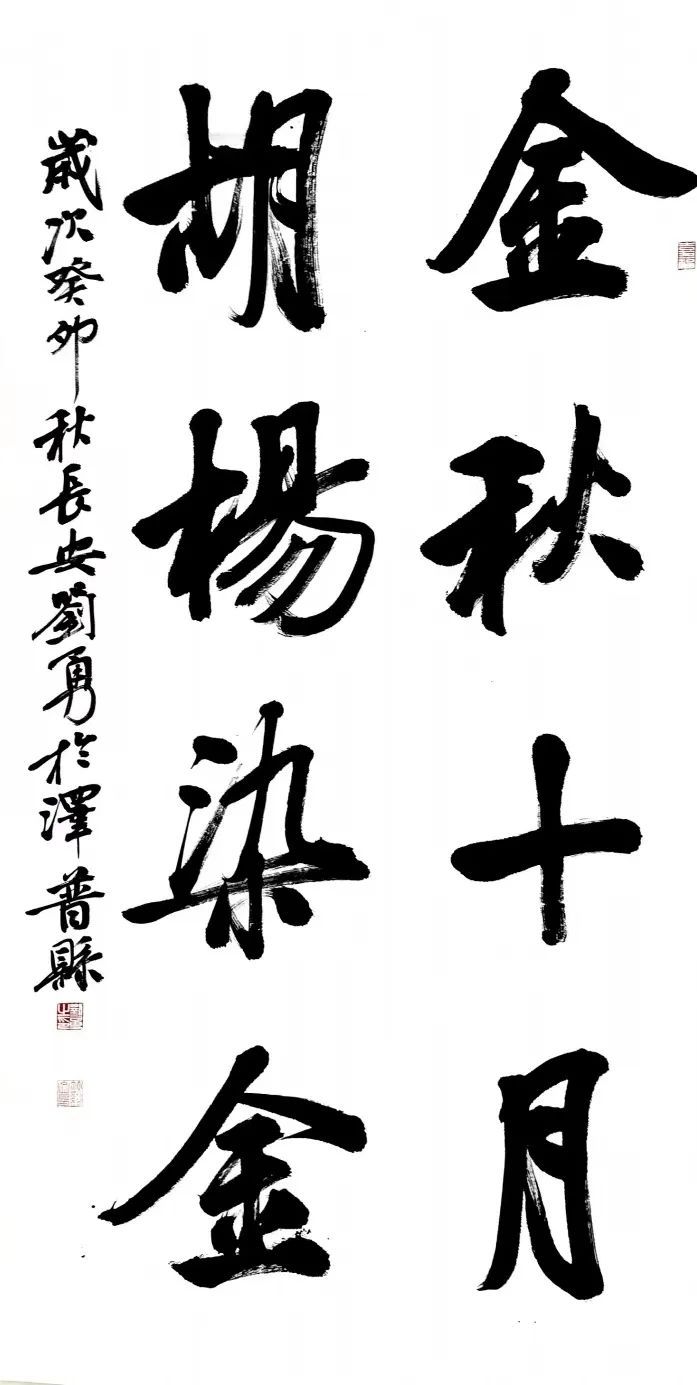 金秋十月
胡楊染金
歲次癸卯秋長安劉勇於澤普縣